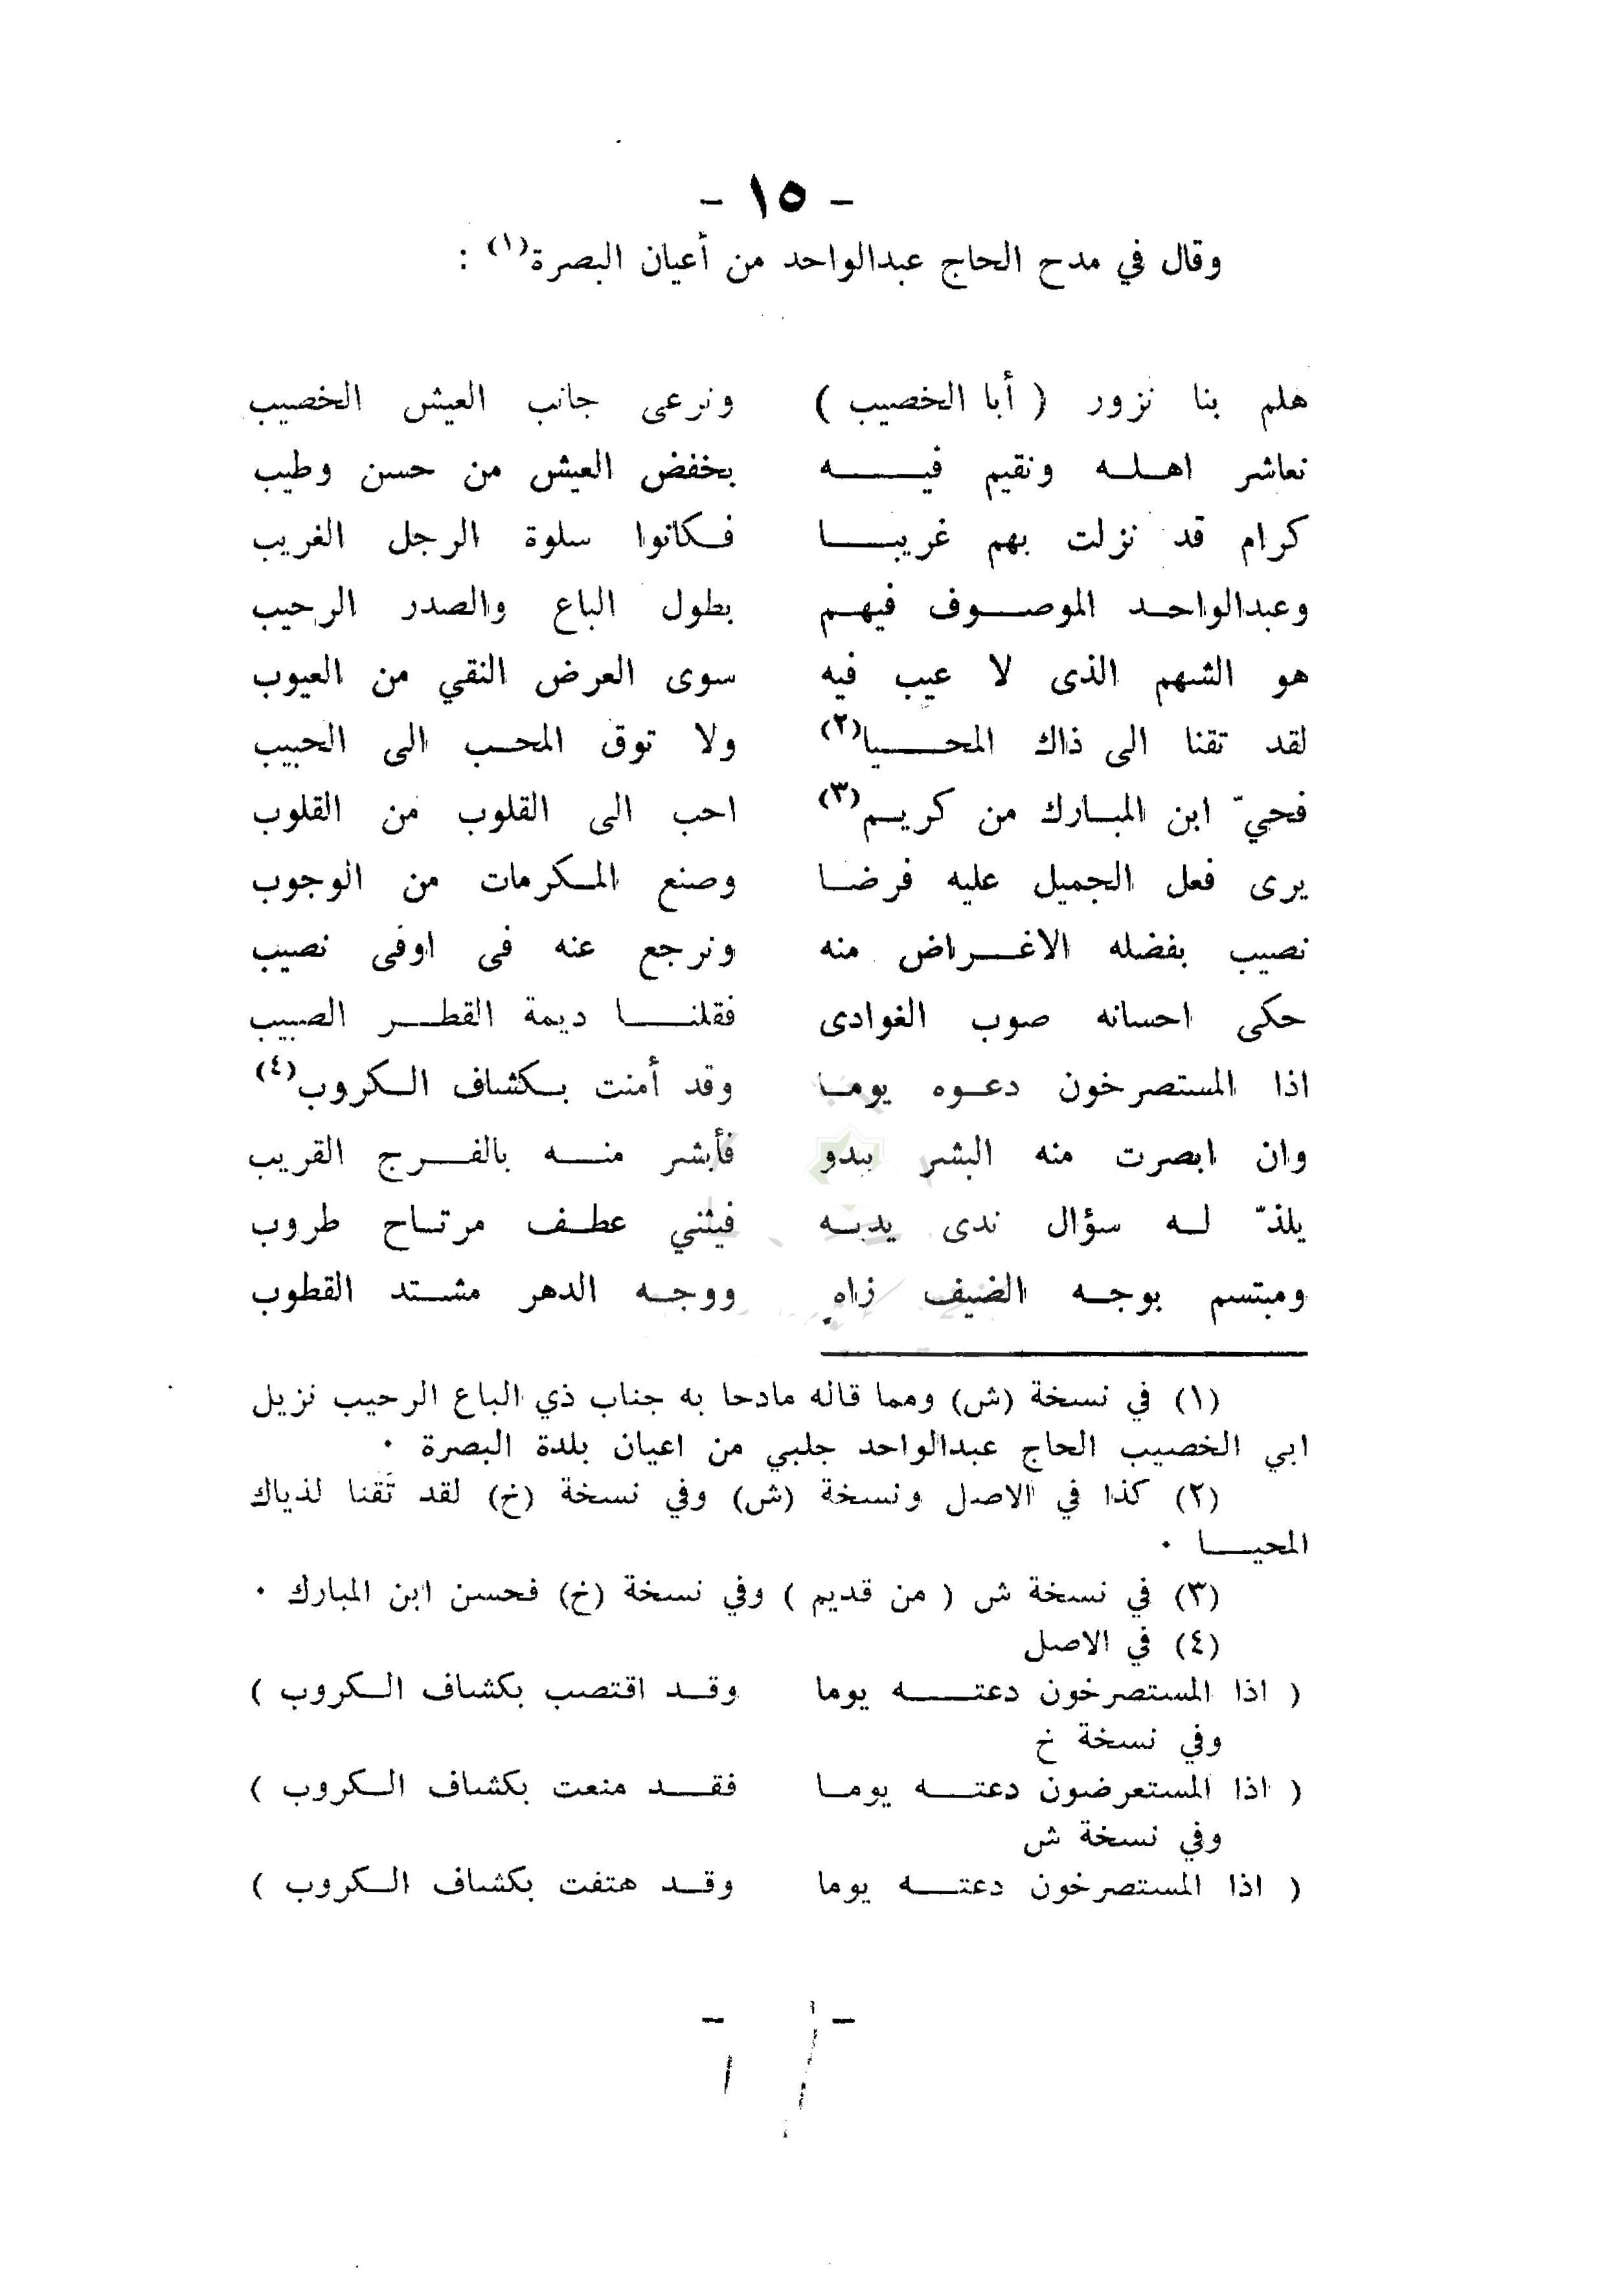 - ١٥ -
وقال في مدح الحاج عبدالواحد من أعيان البصرة(١) :
هلم بنا نزور ( أبا الخصيب ) ونرعى جانب العيش الخصيب
نعاشر اهله ونقيم فيه بخفض العيش من حسن وطيب
كرام قد نزلت بهم غريبا فكانوا سلوة الرجل الغريب
وعبدالواحد الموصوف فيهم بطول الباع والصدر الرحيب
هو الشهم الذى لا عيب فيه سوى العرض النقي من العيوب
لقد تقنا الى ذاك المحيا(٢) ولا توق المحب الى الحبيب
فحيّ ابن المبارك من كريم(٣) احب الى القلوب من القلوب
يرى فعل الجميل عليه فرضا وصنع المكرمات من الوجوب
نصيب بفضله الاغراض منه ونرجع عنه فى اوفى نصيب
حكى احسانه صوب الغوادى فقلنا ديمة القطر الصبيب
اذا المستصرخون دعوه يوما وقد أمنت بكشاف الكروب(٤)
وان ابصرت منه البشر يبدو فأبشر منه بالفرج القريب
يلذّ له سؤال ندى يديه فيثني عطف مرتاح طروب
ومبتسم بوجه الضيف زاهٍ ووجه الدهر مشتد القطوب
(١) في نسخة (ش) ومما قاله مادحا به جناب ذي الباع الرحيب نزيل
ابي الخصيب الحاج عبدالواحد جلبي من اعيان بلدة البصرة ٠
(٢) كذا في الاصل ونسخة (ش) وفي نسخة (خ) لقد تَقنا لذياك
المحيا ٠
(٣) في نسخة ش ( من قديم ) وفي نسخة (خ) فحسن ابن المبارك ٠
(٤) في الاصل
( اذا المستصرخون دعته يوما وقد اقتصب بكشاف الكروب )
وفي نسخة خ
( اذا المستعرضون دعته يوما فقد منعت بكشاف الكروب )
وفي نسخة ش
( اذا المستصرخون دعته يوما وقد هتفت بكشاف الكروب )